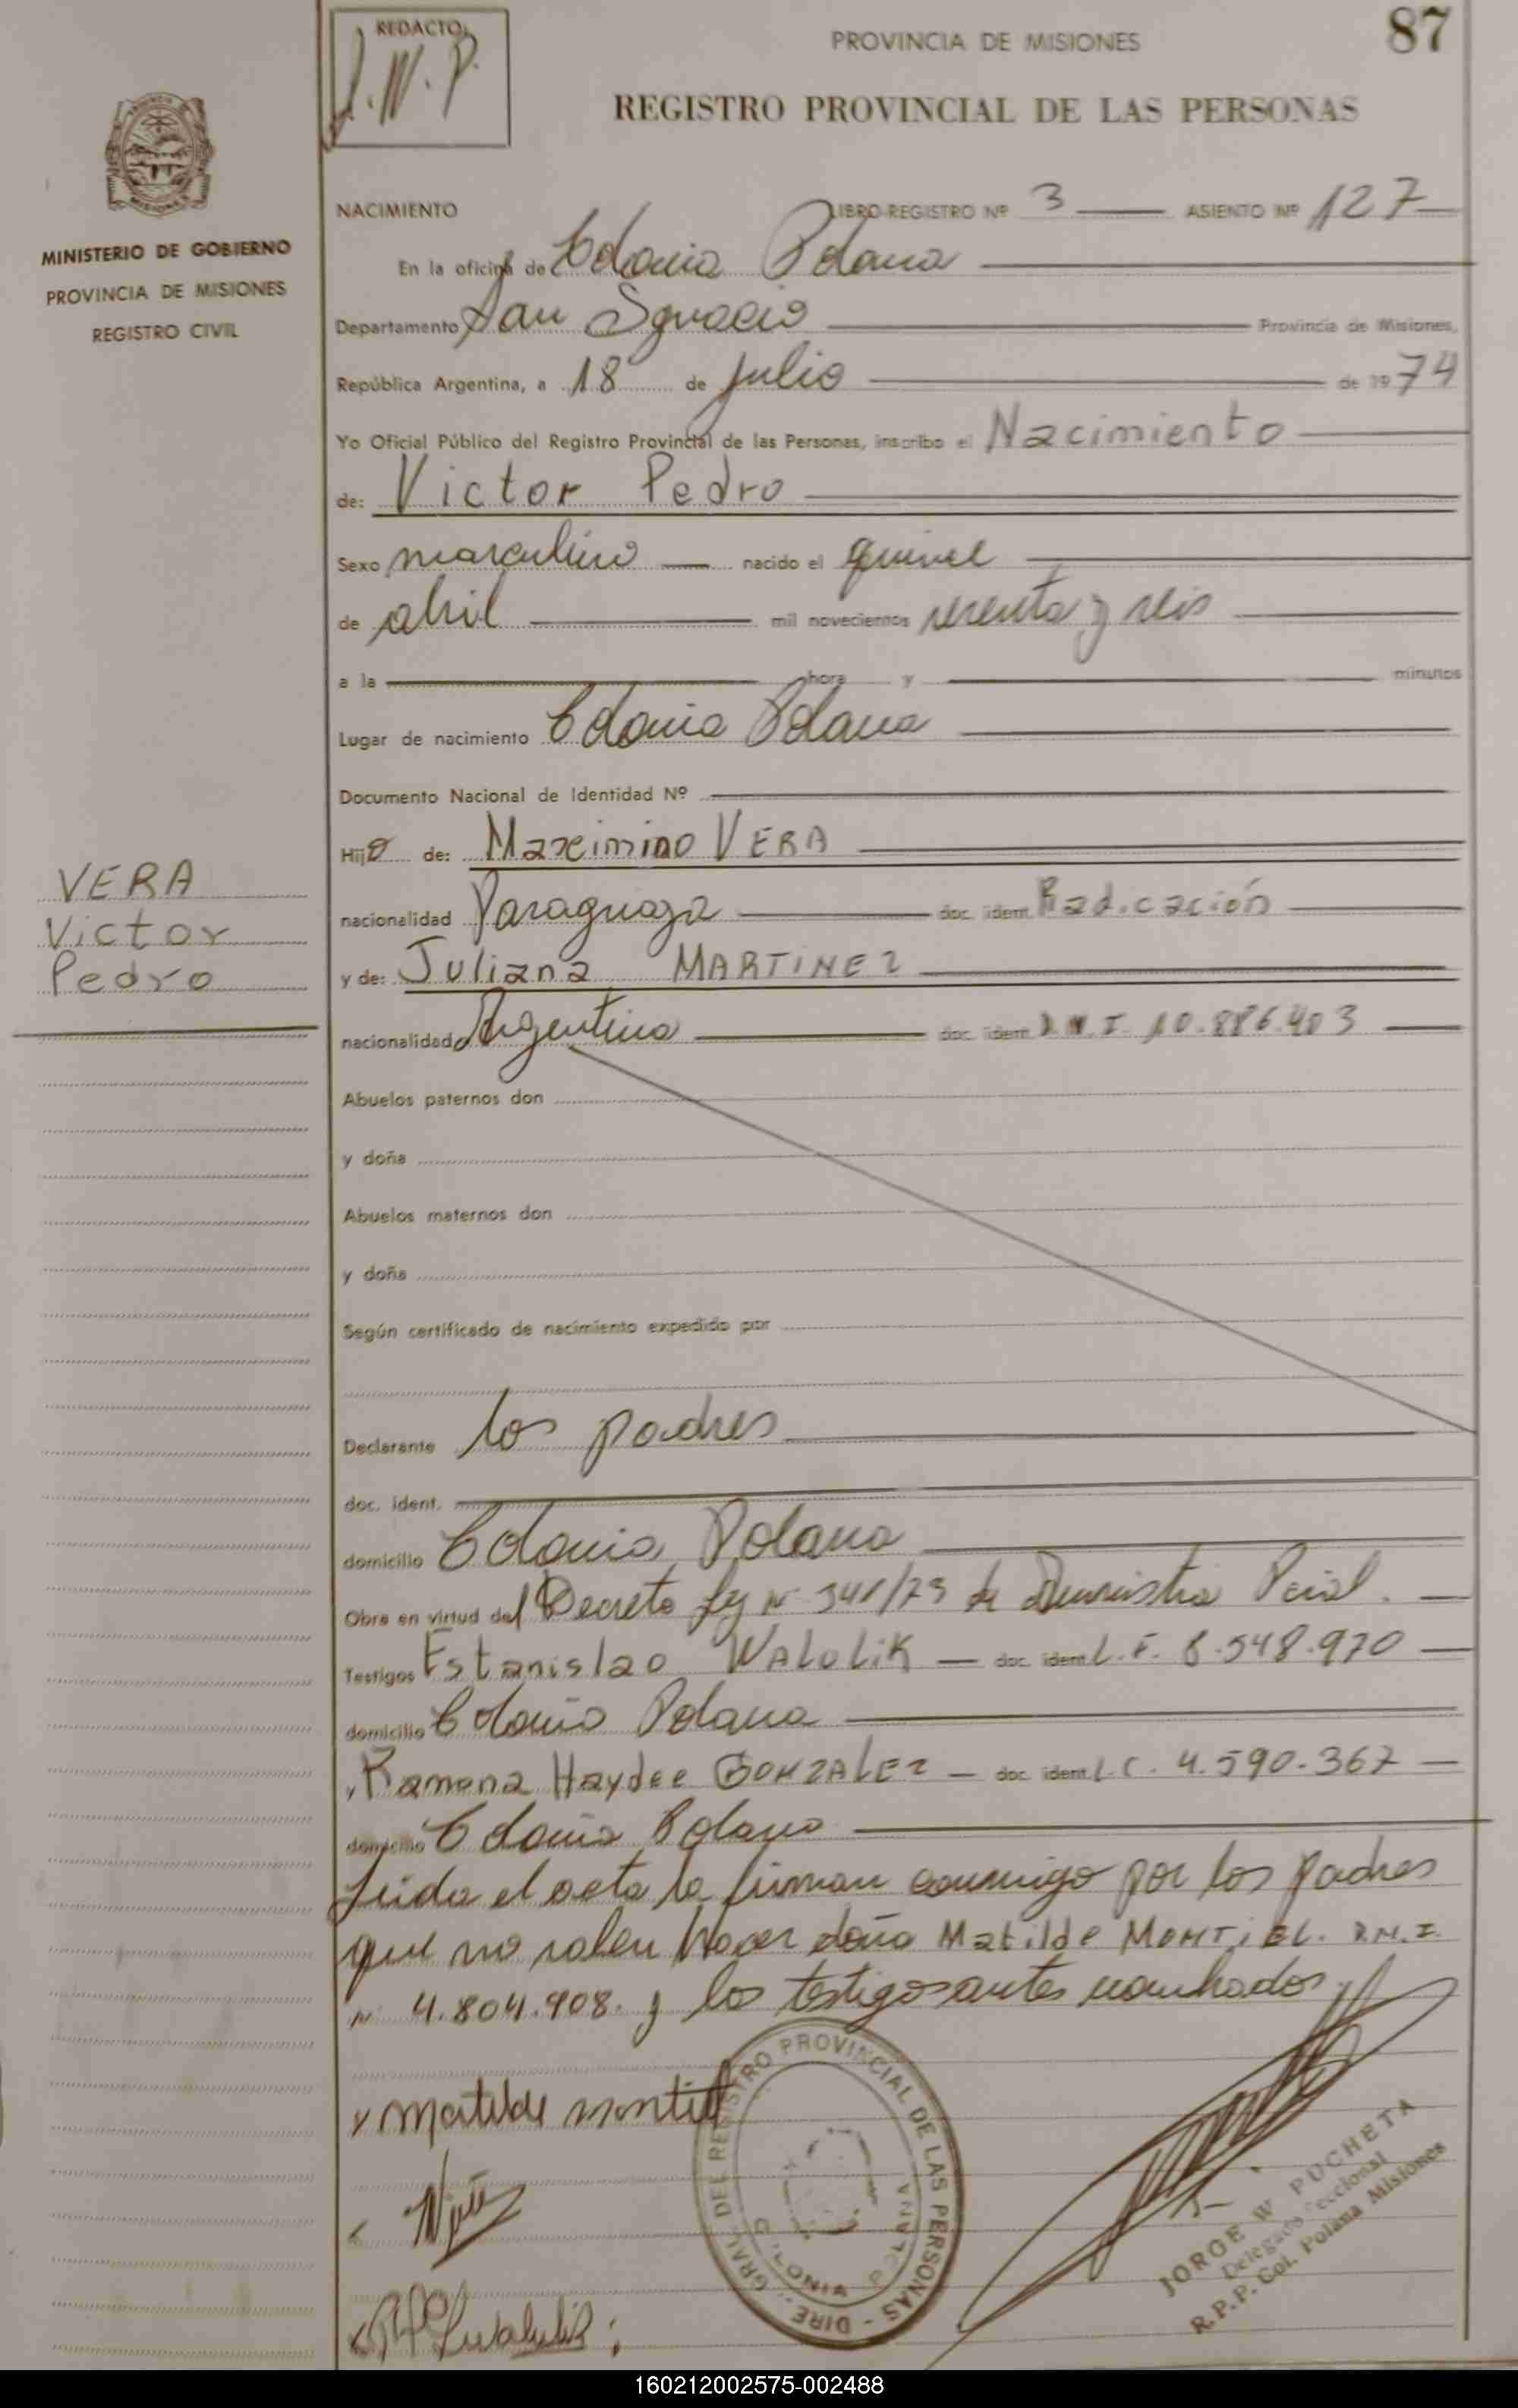 REDACTO:
J.W.P.
PROVINCIA DE MISIONES
87
REGISTRO PROVINCIAL DE LAS PERSONAS
MINISTERIO DE GOBIERNO
PROVINCIA DE MISIONES
REGISTRO CIVIL
NACIMIENTO LIBRO-REGISTRO Nº 3 ASIENTO Nº 127
En la oficina de Colonia Polana
Departamento San Ignacio Provincia de Misiones,
República Argentina, a 18 de Julio de 1974
Yo Oficial Público del Registro Provincial de las Personas, inscribo el Nacimiento
de: Victor Pedro
Sexo masculino nacido el quince
de abril mil novecientos sesenta y seis
a la hora y minutos
Lugar de nacimiento Colonia Polana
Documento Nacional de Identidad Nº
Hijo de: Maximino VERA
VERA
Victor
Pedro
nacionalidad Paraguaya doc. ident. Radicación
y de: Juliana MARTINEZ
nacionalidad Argentina doc. ident. D.N.I. 10.886.403
Abuelos paternos don
y doña
Abuelos maternos don
y doña
Según certificado de nacimiento expedido por
Declarante los padres
doc. ident.
domicilio Colonia Polana
Obra en virtud del Decreto Ley Nº 341/73 de Pcial.
Testigos Estanislao WALULIK doc. ident. L.E. 8.548.970
domicilio Colonia Polana
Ramona Haydee GONZALEZ doc. ident. L.C. 4.590.367
domicilio Colonia Polana
Leida el acta la firman conmigo por los padres
que no saben hacer doña Matilde MONTIEL. D.N.I.
Nº 4.804.908. y los testigos antes nombrados.
x Matilde Montiel
DIRE. GRAL. DEL REGISTRO PROVINCIAL DE LAS PERSONAS
COLONIA POLANA
JORGE W PUCHETA
Delegado Seccional
R.P.P. Col. Polana Misiones
160212002575-002488